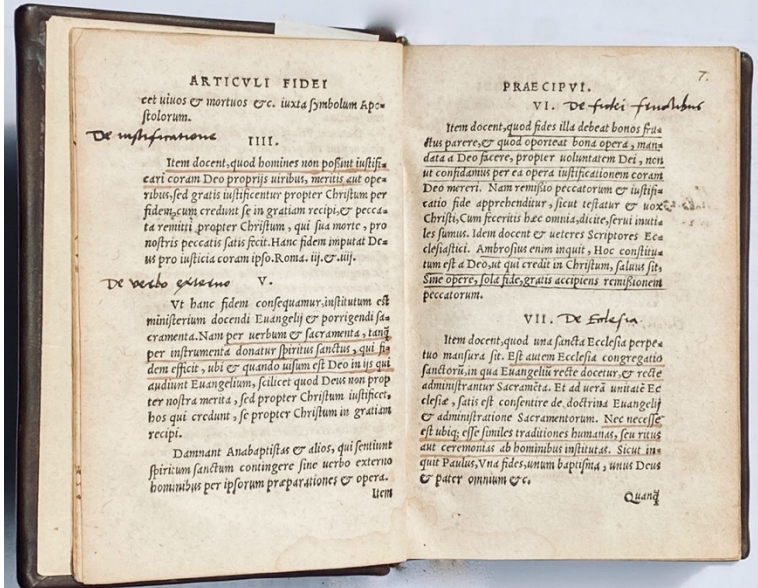 ARTICVLI FIDEI
cet uiuos & mortuos &c. iuxta symbolum Apo=
stolorum.
De iustificatione
IIII.
Item docent, quod homines non possint iustifi=
cari coram Deo proprijs uiribus, meritis aut ope=
ribus, sed gratis iustificentur propter Christum per
fidem, cum credunt se in gratiam recipi, & pecca=
ta remitti propter Christum, qui sua morte, pro
nostris peccatis satis fecit. Hanc fidem imputat De=
us pro iusticia coram ipso. Roma. iij. & .iiij.
De verbo externo
V.
Vt hanc fidem consequamur, institutum est
ministerium docendi Euangelij & porrigendi sa=
cramenta. Nam per uerbum & sacramenta, tanq̃
per instrumenta donatur spiritus sanctus, qui fi=
dem efficit, ubi & quando uisum est Deo in ijs qui
audiunt Euangelium, scilicet quod Deus non prop
ter nostra merita, sed propter Christum iustificet,
hos qui credunt, se propter Christum in gratiam
recipi.
Damnant Anabaptistas & alios, qui sentiunt
spiritum sanctum contingere sine uerbo externo
hominibus per ipsorum præparationes & opera.
Item
PRAECIPVI.
7.
VI. De fidei
Item docent, quod fides illa debeat bonos fru=
ctus parere, & quod oporteat bona opera, man=
data a Deo facere, propter uoluntatem Dei, non
ut confidamus per ea opera iustificationem coram
Deo mereri. Nam remissio peccatorum & iustifi=
catio fide apprehenditur, sicut testatur & uox
Christi, Cum feceritis hæc omnia, dicite, serui inuti=
les sumus. Idem docent & ueteres Scriptores Ec=
clesiastici. Ambrosius enim inquit, Hoc constitu=
tum est a Deo, ut qui credit in Christum, saluus sit,
Sine opere, sola fide, gratis accipiens remissionem
peccatorum.
VII. De Ecclesia
Item docent, quod una sancta Ecclesia perpe=
tuo mansura sit. Est autem Ecclesia congregatio
sanctorũ, in qua Euangeliũ recte docetur, & recte
administrantur Sacramẽta. Et ad uerã unitatẽ Ec
clesiæ, satis est consentire de doctrina Euangelij
& administratione Sacramentorum. Nec necesse
est ubiq; esse similes traditiones humanas, seu ritus
aut ceremonias ab hominibus institutas. Sicut in=
quit Paulus, Vna fides, unum baptisma, unus Deus
& pater omnium &c.
Quanq̃